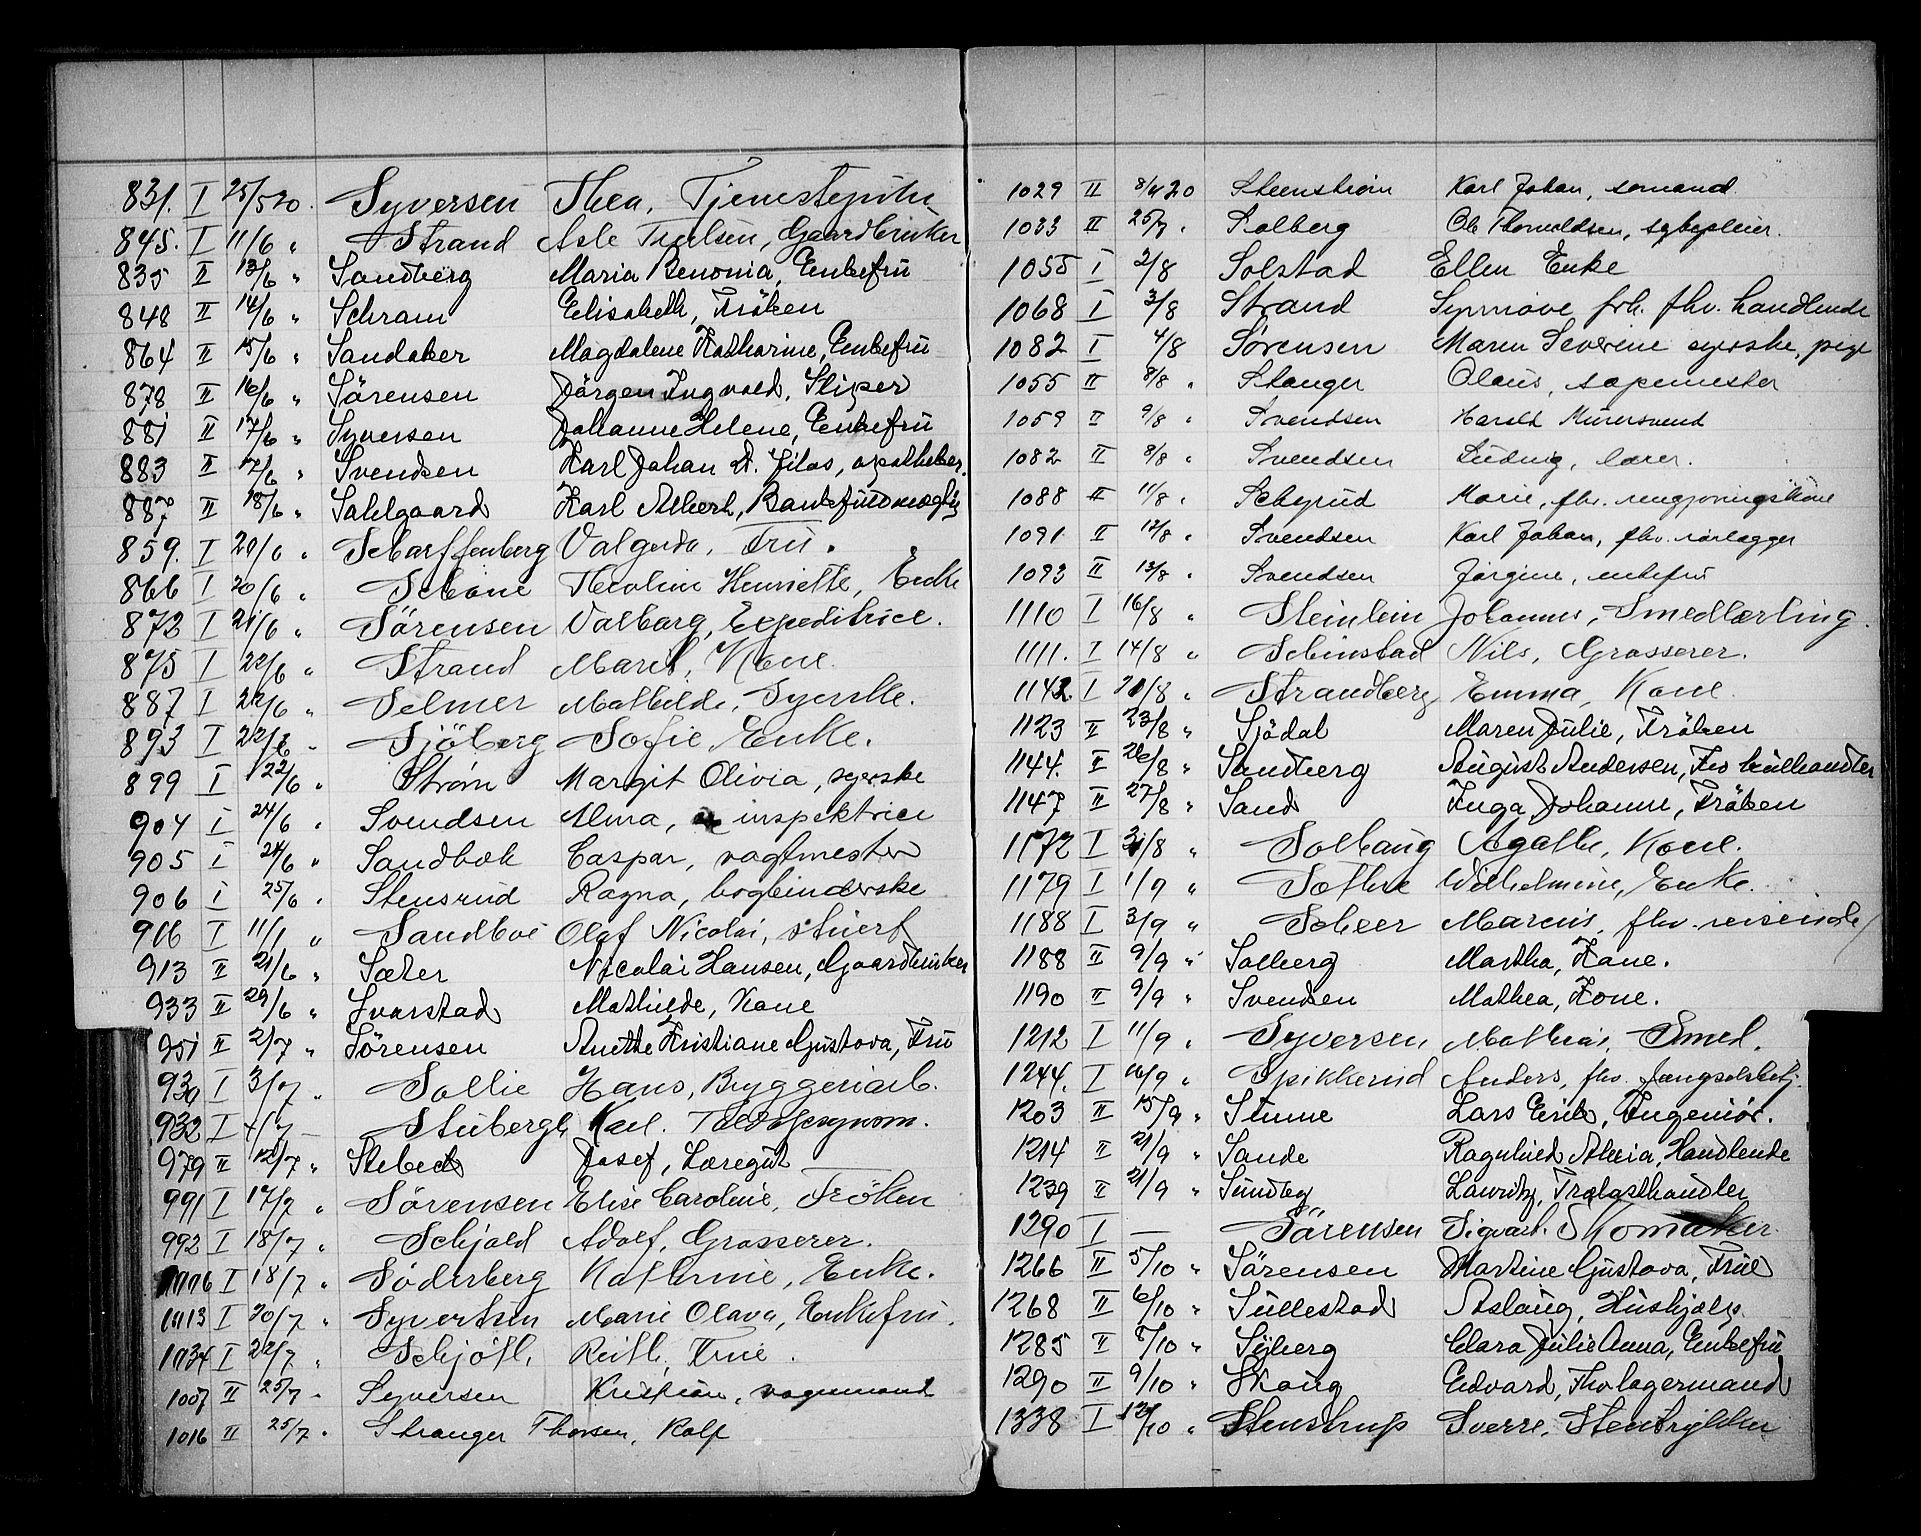 831. I 25/5 20. Syversen Thea, Tjenestepike
845. I 11/6 " Strand Asle Truelsen, Gaardbruker
835 II 13/6 " Sandberg Maria Benonia, Enkefru
848 II 14/6 " Schram Elisabeth, Fröken
864 II 15/6 " Sandaker Magdalene Katharine, Enkefru
878 II 16/6 " Sörensen Jörgen Ingvald, Sliper
881 II 17/6 " Syversen Johanne Helene, Enkefru
883 II 17/6 " Svendsen Karl Johan D. Filos, apotheker.
887 II 18/6 " Sahlgaard Karl Albert, Bankfuldmægtig
859. I 20/6 " Scharffenberg Valgerda, Fru.
866 I 20/6 " Schöne Nicoline Henriette, Enke
872 I 21/6 " Sörensen Valborg, Expeditrice.
875 I 22/6 " Strand Marit, Kone.
887 I 22/6 " Selmer Mathilde, Syerske.
893 I 22/6 " Sjöberg Sofie, Enke.
899 I 22/6 " Strøm Margit Olivia, syerske
904 I 24/6 " Svendsen Alma, inspektrice
905 I 24/6 " Sandbæk Caspar, vagtmester
906 I 25/6 " Stensrud Ragna, bogbinderske
916 I 11/1 " Sandboe Olaf Nicolai, stuert
913 II 21/6 " Sæter Nicolai Hansen, Gaardbruker
933 II 29/6 " Svarstad Mathilde, Kone
951 II 2/7 " Sörensen Anette Kristiane Gustava, Fru
930 I 3/7 " Sollie Hans, Bryggeriarb.
932 I 4/7 — Stubergh Karl. Toldstesgnom.
979 II 12/7 " Stebeck Josef, Læregut
991 I 17/7 " Sörensen Elise Caroline, Fröken
992 I 18/7 " Schjold Adolf, Grosserer.
1006 I 18/7 " Söderberg Kathrine, Enke.
1013 I 20/7 " Syvertsen Marie Olava, Enkefru.
1034 I 22/7 " Schjöth, Ruth, Frue.
1007 II 25/7 " Syversen Kristian, vognmand
1016 II 25/7 " Stranger Thorsen, Rolf
1029 II 8/4 20 Steenstrøm Karl Johan, sømand.
1033 II 25/7 " Solberg Ole Thorvaldsen, sykepleier.
1055 I 2/8 Solstad Ellen Enke
1068 I 3/8 Strand Synnøve frk. fhv. handlende
1082 I 4/8 Sørensen Maren Severine syerske, pige
1055 II 8/8 " Stanger Olaus, sæpemester
1059 II 9/8 " Svendsen Harald Murersvend
1082 II 8/8 " Svendsen Ludvig, lærer.
1088 II 11/8 " Schyrud Marie, fhv. rengjøringskone
1091 II 12/8 " Svendsen Karl Johan, fhv. rørlægger
1093 II 13/8 " Svendsen Jørgine, enkefru
1110 I 16/8 " Steinlein Johannes, Smedlærling.
1111. I 14/8 " Schinstad Nils, Grosserer.
1142. I 20/8 " Strandberg Emma, Kone.
1123 II 23/8 " Sjödal Maren Julie, Fröken
1144. II 26/8 " Sandberg August Andersen, Fhv kulhandler
1147 II 27/8 " Sand Inga Johanne, Fröken
1172 I 31/8 " Solhaug Agathe, Kone.
1179 I 1/9 " Sothre Wilhelmine, Enke.
1188 I 3/9 " Scheer Marcus, fhv. reisende
1188 II 9/9 " Solberg Martha, Kone.
1190 II 9/9 " Svendsen Mathea, Kone.
1212 I 11/9 " Syversen Mathias, Smed.
1244. I 16/9 " Spikkerud Anders, fhv. fængselsbetj.
1203 II 15/9 " Stunne Lars Erik, Ingeniör.
1214 II 21/9 " Sande Ragnhild Alexia, Handlende
1239 II 21/9 " Sundby Lauritz, Trælasthandler
1290 I — Sörensen Sigvart. Skomaker.
1266 II 5/10 " Sörensen Martine Gustava, Frue
1268 II 6/10 " Sullestad Aslaug, Hushjælp.
1285 II 8/10 " Syberg Clara Julie Anna, Enkefru
1290 II 9/10 " Skaug Edvard, Fhv lagermand
1338 I 13/10 " Stenstrup Sverre, Stentrykker